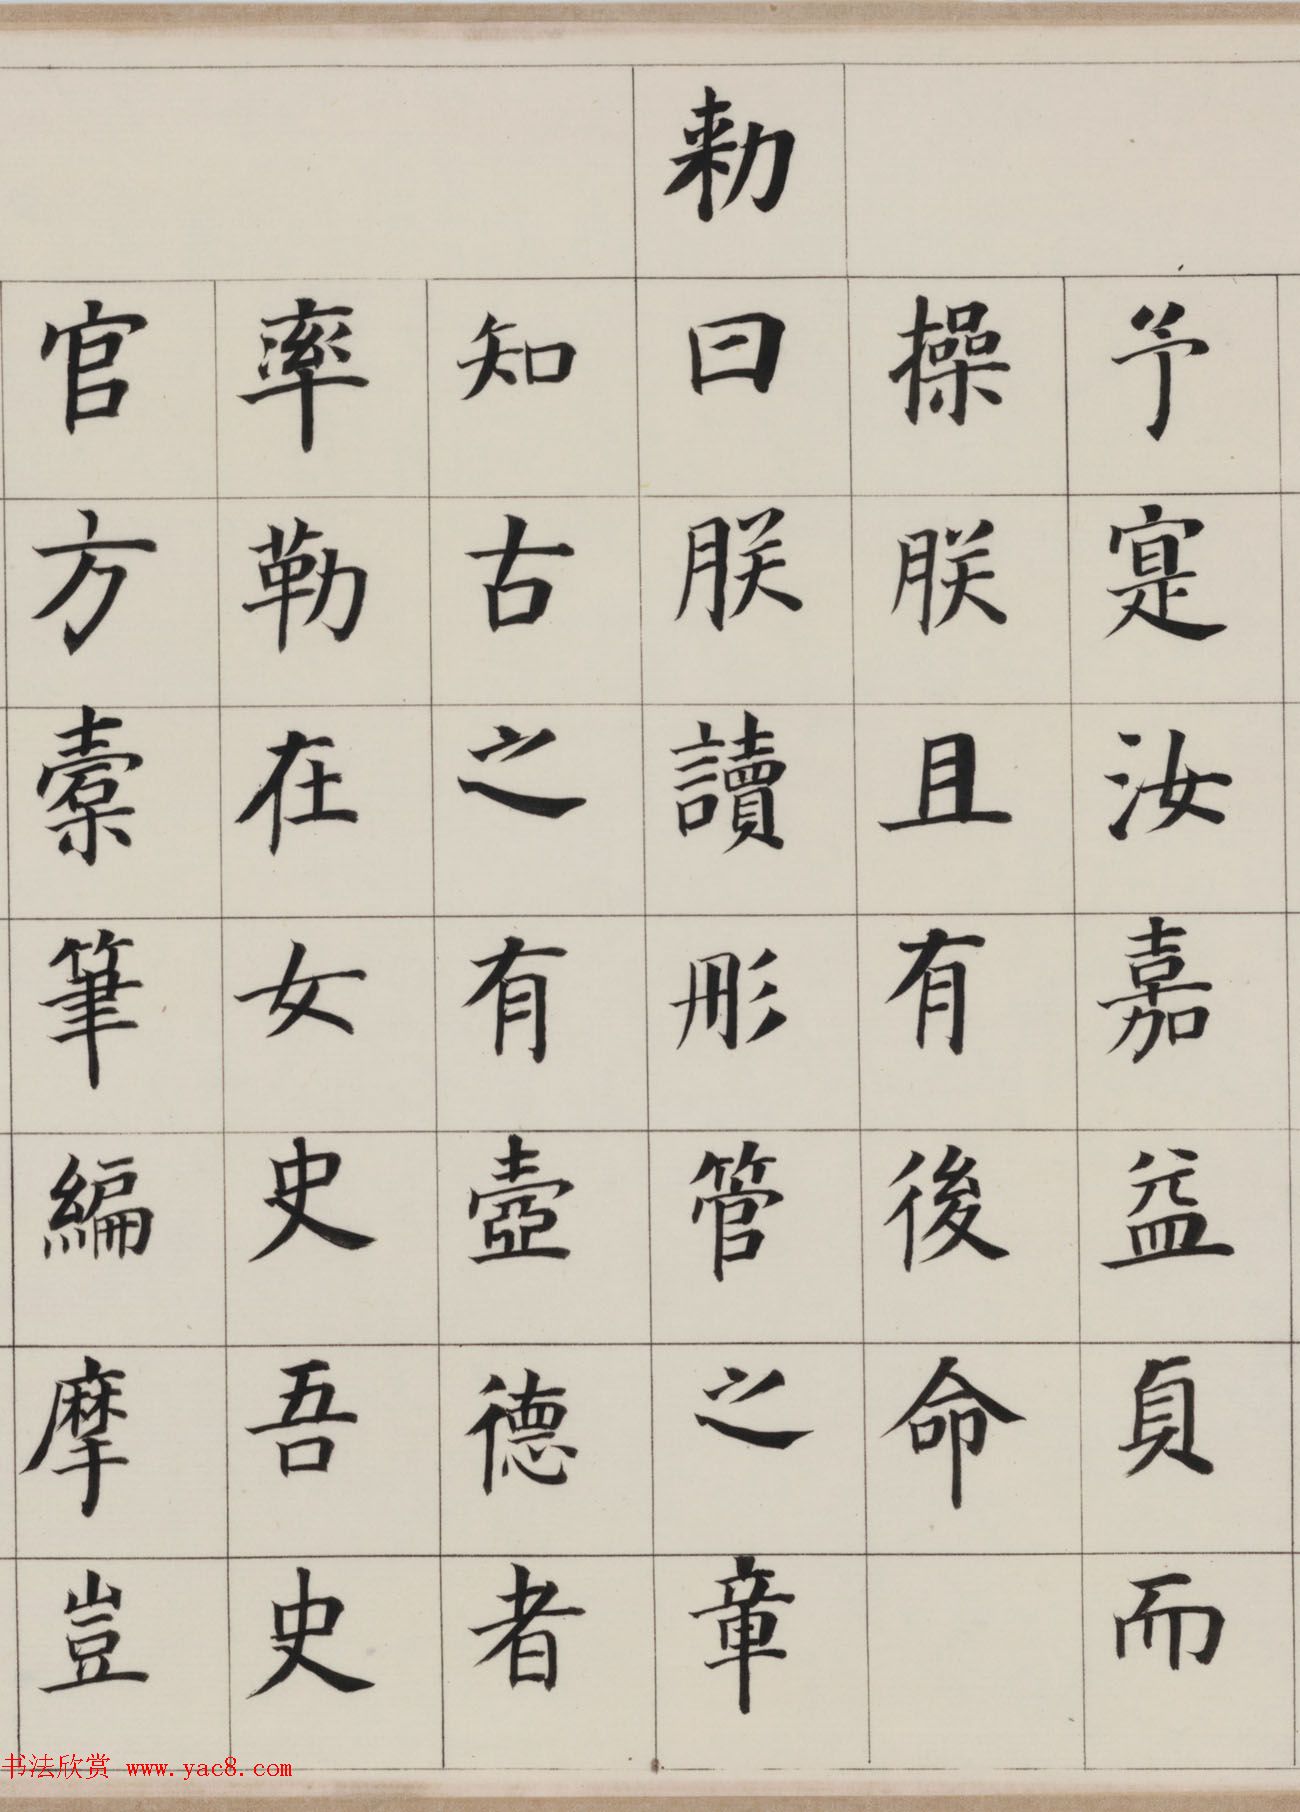 予寔汝嘉益貞而
操朕且有後命
勑曰朕讀彤管之章
知古之有壼德者
率勒在女史吾史
官方櫜筆編摩豈
书法欣赏 www.yac8.com